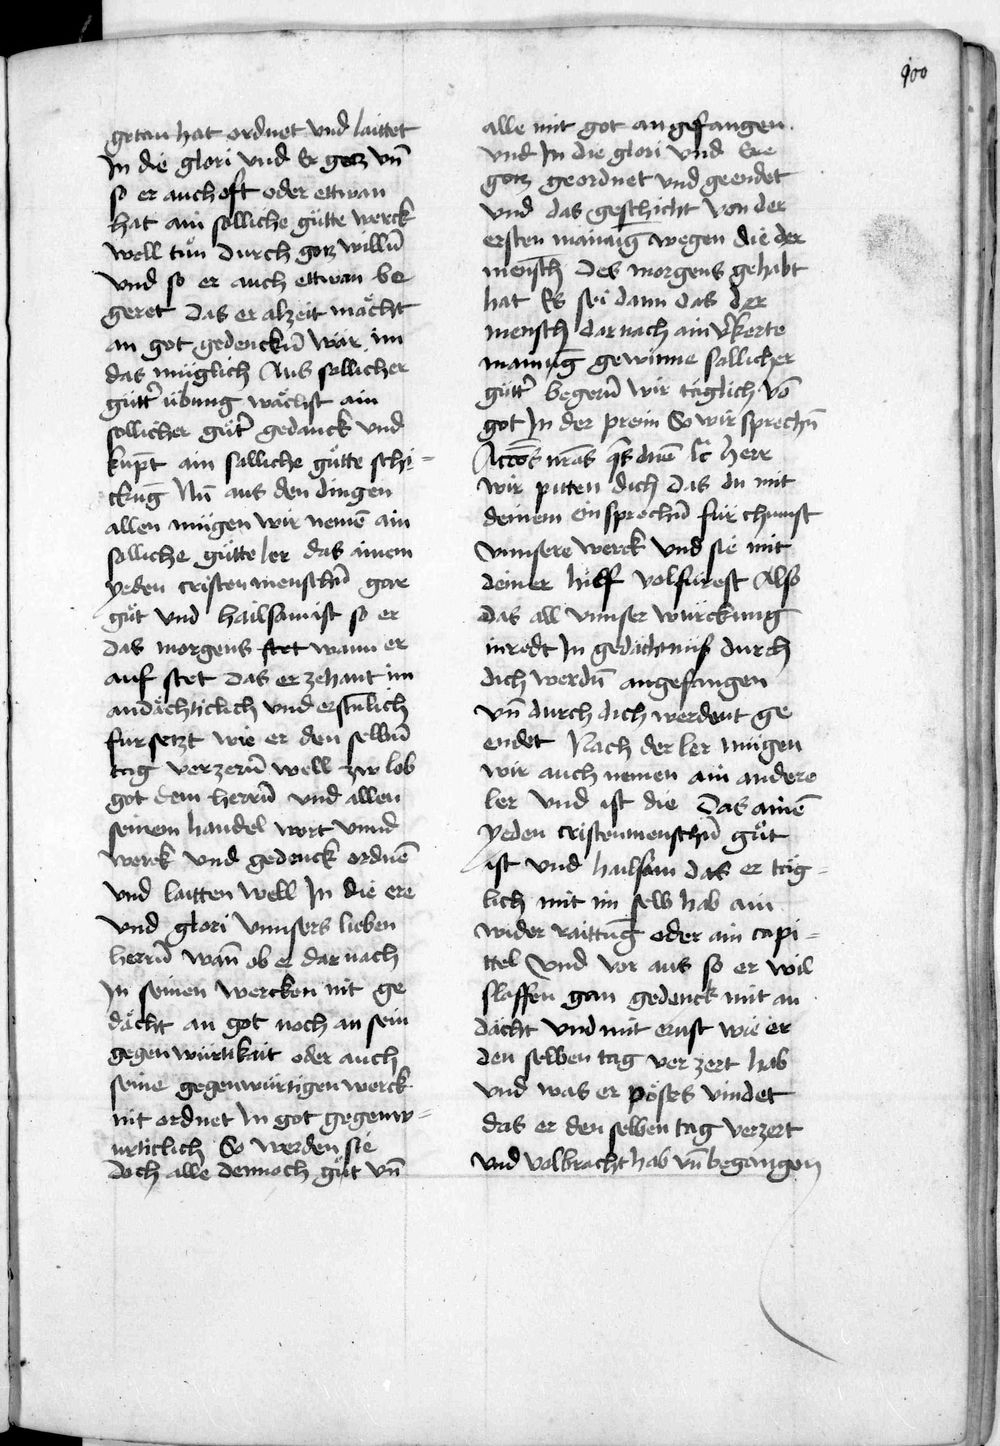 100
getan hat ordnet vnd laittet
In die glori vnd Er gotz vn̄
so er auch oft oder ettwan
hat ain solliche gůtte werck
well tůn durch gotz willn̄
vnd so er auch ettwan be
geret das er alzeit mächt
an got gedenckn̄ wär im
das müglich Aus sollicher
gůtt̄ übung wächst ain
sollicher gůt̄ gedanck vnd
kupt̄ ain solliche gůtte schi-
ckuḡ Nu̅ aus den dingen
allen mügen wir neme̅ ain
solliche gůtte ler das ainem
yeden cristenmenschn̄ gar
gůt vnd hailsam ist so er
das morgens stet wann er
auf stet das er zehant im
andächticlich vnd erstn̄lich
fursetzt wie er den selbn̄
tag verzern̄ well zw lob
got dem herrn̄ vnd allen
seinem handel wort vnnd
werck vnd gedenck ordne̅
vnd laitten well In die ere
vnd glori vnnsers lieben
herrn̄ wan̄ ob er dar nach
In seinen wercken nit ge
dächt an got noch an sein
gegenwürtikait oder auch
seine gegenwürtigen werck
nit ordnet In got gegenw-
urticlich So werden sie
doch alle dennoch gůt vn̄
alle mit got angefangen
vnd In die glori vnd Ere
gotz geordnet vnd geendet
vnd das geschicht von der
ersten mainuḡ wegen die der
mensch des morgens gehabt
hat Es sei dann das der
mensch dar nach ain v̄kerte
mainuḡ gewinne sollicher
gůtt̄ begern̄ wir täglich vo̅
got In der preim So wir sprechn̄
Acc̅o̅s nr̅as q̅s dn̅e ꝛc̄ herr
wir pitten dich das du mit
deinem einsprechn̄ fürchumst
vnnsere werck vnd sie mit
deiner hilf volfürest Also
das all vnnser würckung
inredt In gedächtnüß durch
dich werdn̄ angefangen
vn̄ durch dich werdent ge
endet Nach der ler mügen
wir auch nemen ain andere
ler vnd ist die Das aine̅
yeden cristenmenschn̄ gůt
ist vnd hailsam das er täg-
lich mit im selb hab ain
wider raittunḡ oder ain capi-
ttel vnd vor aus so er wil
slaffen gan gedenck mit an
dächt vnd mit ernst wie er
den selben tag verzert hab
vnd was er pöses vindet
das er den selben tag verzert
vnd volbracht hab vn̄ begangen